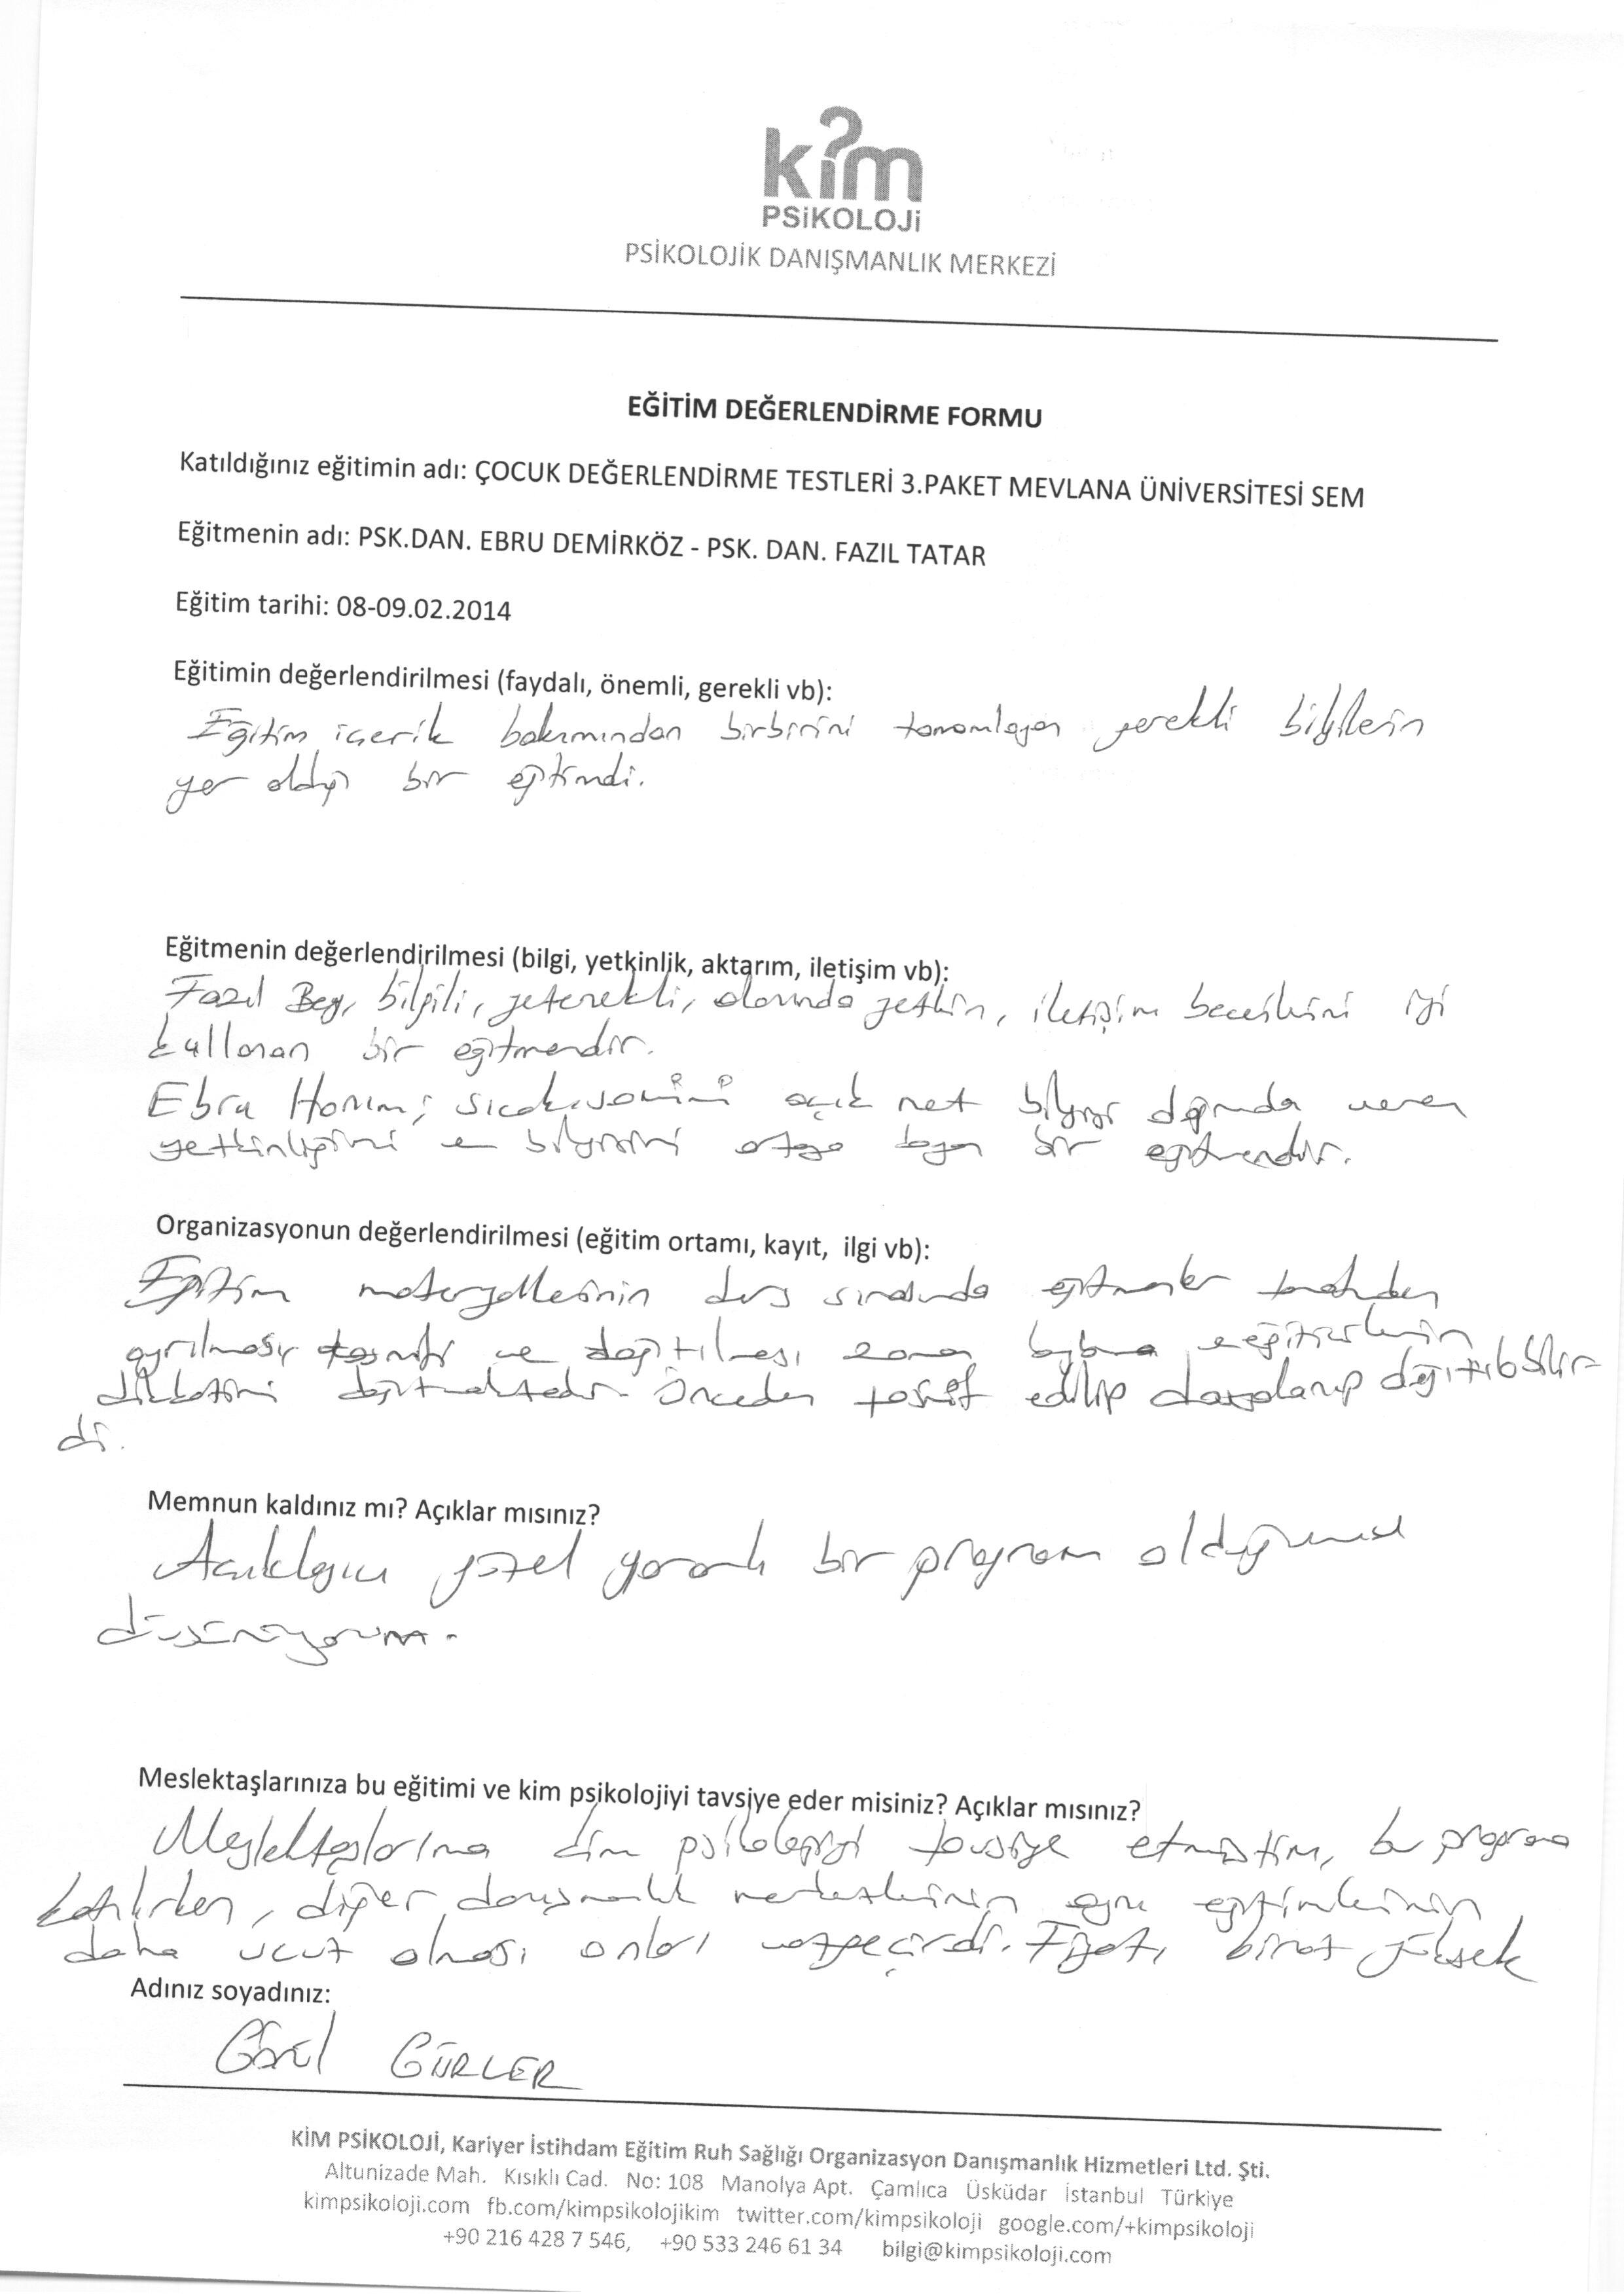 kim
PSİKOLOJİ
PSİKOLOJİK DANIŞMANLIK MERKEZİ
EĞİTİM DEĞERLENDİRME FORMU
Katıldığınız eğitimin adı: ÇOCUK DEĞERLENDİRME TESTLERİ 3.PAKET MEVLANA ÜNİVERSİTESİ SEM
Eğitmenin adı: PSK.DAN. EBRU DEMİRKÖZ - PSK. DAN. FAZIL TATAR
Eğitim tarihi: 08-09.02.2014
Eğitimin değerlendirilmesi (faydalı, önemli, gerekli vb):
Eğitim içerik bakımından birbirini tamamlayan gerekli bilgilerin
yer aldığı bir eğitimdi.
Eğitmenin değerlendirilmesi (bilgi, yetkinlik, aktarım, iletişim vb):
Fazıl Bey, bilgili, yeterekli, alanında yetkin, iletişim becerilerini iyi
kullanan bir eğitmendir.
Ebru Hanım; açık net bilgiyi veren
yetkinliğini ve bilgisini ortaya koyan bir eğitmendir.
Organizasyonun değerlendirilmesi (eğitim ortamı, kayıt, ilgi vb):
Eğitim materyallerinin ders sırasında eğitmenler tarafından
ayrılması, tasnifi ve dağıtılması zaman kaybına, eğiticilerinin
dikkatini dağıtmaktadır. Önceden tasnif edilip dosyalanıp dağıtılabilir-
di.
Memnun kaldınız mı? Açıklar mısınız?
Açıklayıcı güzel yararlı bir program olduğunu
düşünüyorum.
Meslektaşlarınıza bu eğitimi ve kim psikolojiyi tavsiye eder misiniz? Açıklar mısınız?
Meslektaşlarıma kim psikolojiyi tavsiye etmiştim, bu programa
katılırken, diğer danışmanlık merkezlerinin aynı eğitimlerinin
daha ucuz olması onları vazgeçirdi. Fiyatı biraz yüksek
Adınız soyadınız:
GÜRLER
KİM PSİKOLOJİ, Kariyer İstihdam Eğitim Ruh Sağlığı Organizasyon Danışmanlık Hizmetleri Ltd. Şti.
Altunizade Mah. Kısıklı Cad. No: 108 Manolya Apt. Çamlıca Üsküdar İstanbul Türkiye
kimpsikoloji.com fb.com/kimpsikolojikim twitter.com/kimpsikoloji google.com/+kimpsikoloji
+90 216 428 7 546, +90 533 246 61 34 bilgi@kimpsikoloji.com